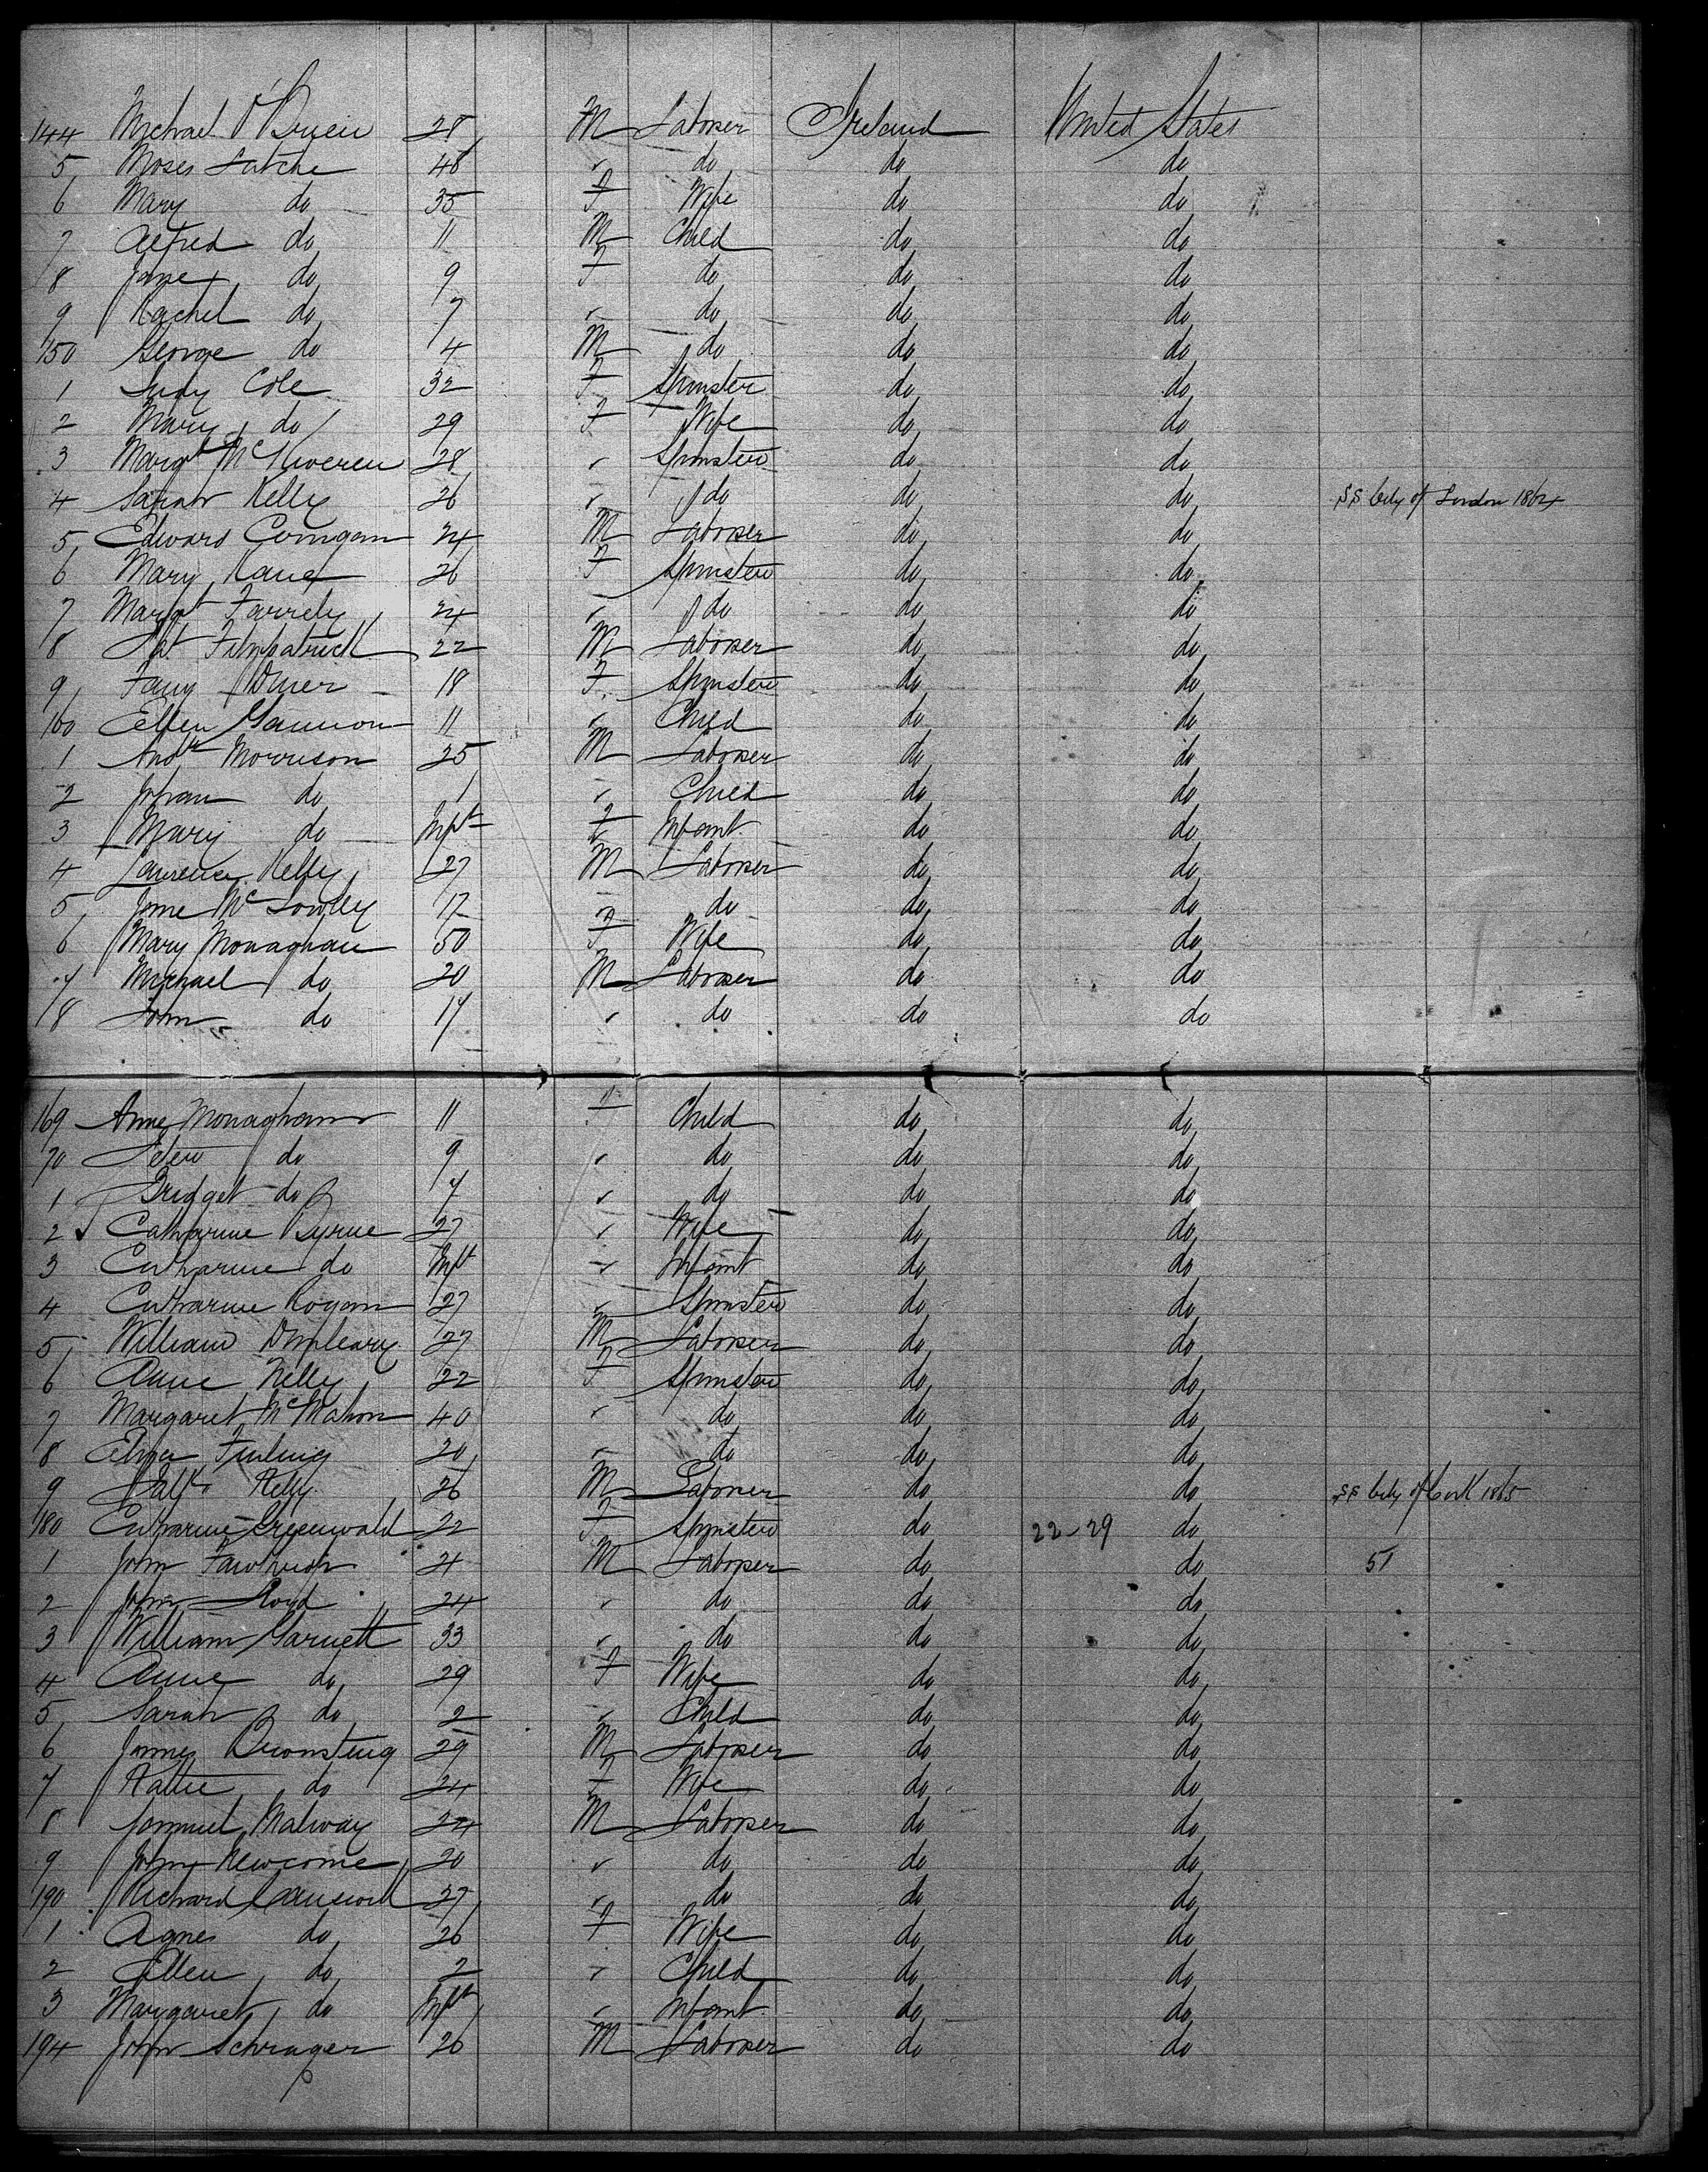 144 Michael O'Brien 28 M Laborer Ireland United States
5 Moses Latche 48 " do do do
6 Mary do 35 F Wife do do
7 Alfred do 11 M Child do do
8 Jane do 9 F do do do
9 Rachel do 7 " do do do
150 George do 4 M do do do
1 Judy Cole 32 F Spinster do do
2 Mary do 29 F Wife do do
3 Margt 28 " Spinster do do
4 Sarah Kelly 26 " do do do S.S City of London 1864
5 Edward 24 M Laborer do do
6 Mary Kane 26 F Spinster do do
7 Margt Farrely 24 " do do do
8 Pat Fitzpatrick 22 M Laborer do do
9 18 F Spinster do do
160 Ellen Gannon 11 " Child do do
1 Andw Morrison 25 M Laborer do do
2 Johan do 1 " Child do do
3 Mary do Inft F Infant do do
4 Laurence Kelly 27 M Laborer do do
5 Jane 17 " do do do
6 Mary Monaghan 50 F Wife do do
7 Michael do 20 M Laborer do do
18 John do 17 " do do do
169 Anne Monaghan 11 F Child do do
70 Peter do 9 " do do do
1 Bridget do 7 " do do do
2 Catharine Byrne 27 " Wife do do
3 Catharine do Inft " Infant do do
4 Catharine Rogan 27 " Spinster do do
5 William 27 M Laborer do do
6 Anne Kelly 22 F Spinster do do
7 Margaret McMahon 40 " do do do
8 Eliza 20 " do do do
9 Kelly 26 M Laborer do do S.S City of Cork 1865
180 Catharine Gresenwald 22 F Spinster do 22-29 do
1 John 21 M Laborer do do 51
2 John Lloyd 24 " do do do
3 William Garnett 33 " do do do
4 Anne do 29 F Wife do do
5 Sarah do 2 " Child do do
6 James 29 M Laborer do do
7 Katie do 24 F Wife do do
8 Samuel Malway 24 M Laborer do do
9 John Newcome 20 " do do do
190 Richard 27 " do do do
1 Agnes do 26 F Wife do do
2 Ellen do 2 " Child do do
3 Margaret do Inft " Infant do do
194 John Schrager 26 M Laborer do do